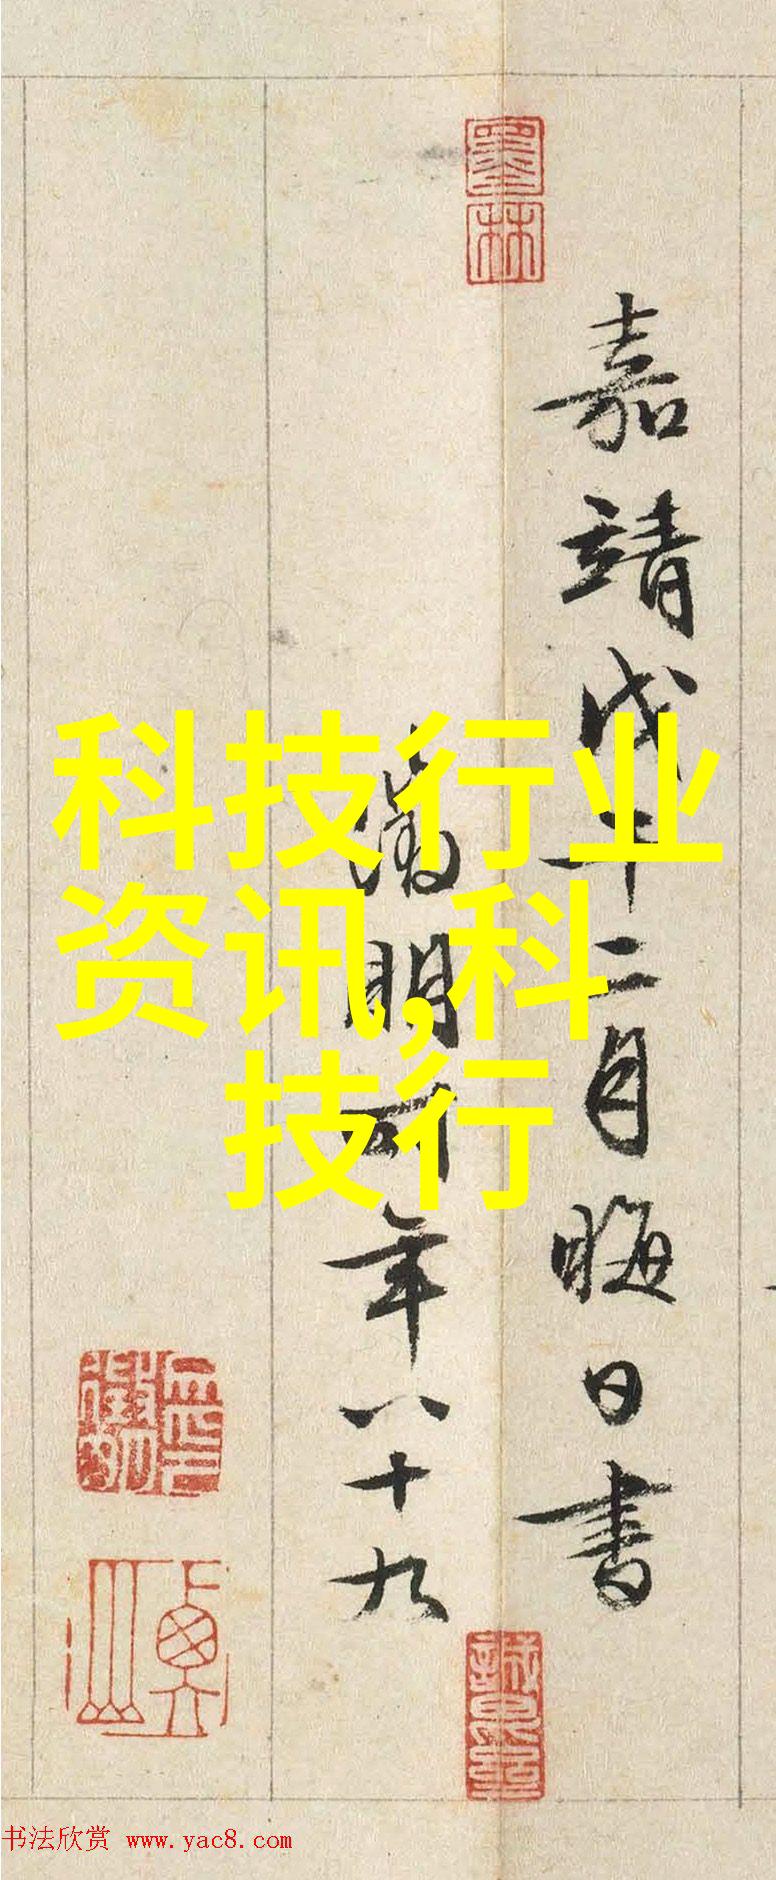 科技行业
资讯,科
技行
墨林
嘉靖戊午二月晦日書
徵明時年八十九
衡山
书法欣赏 www.yac8.com